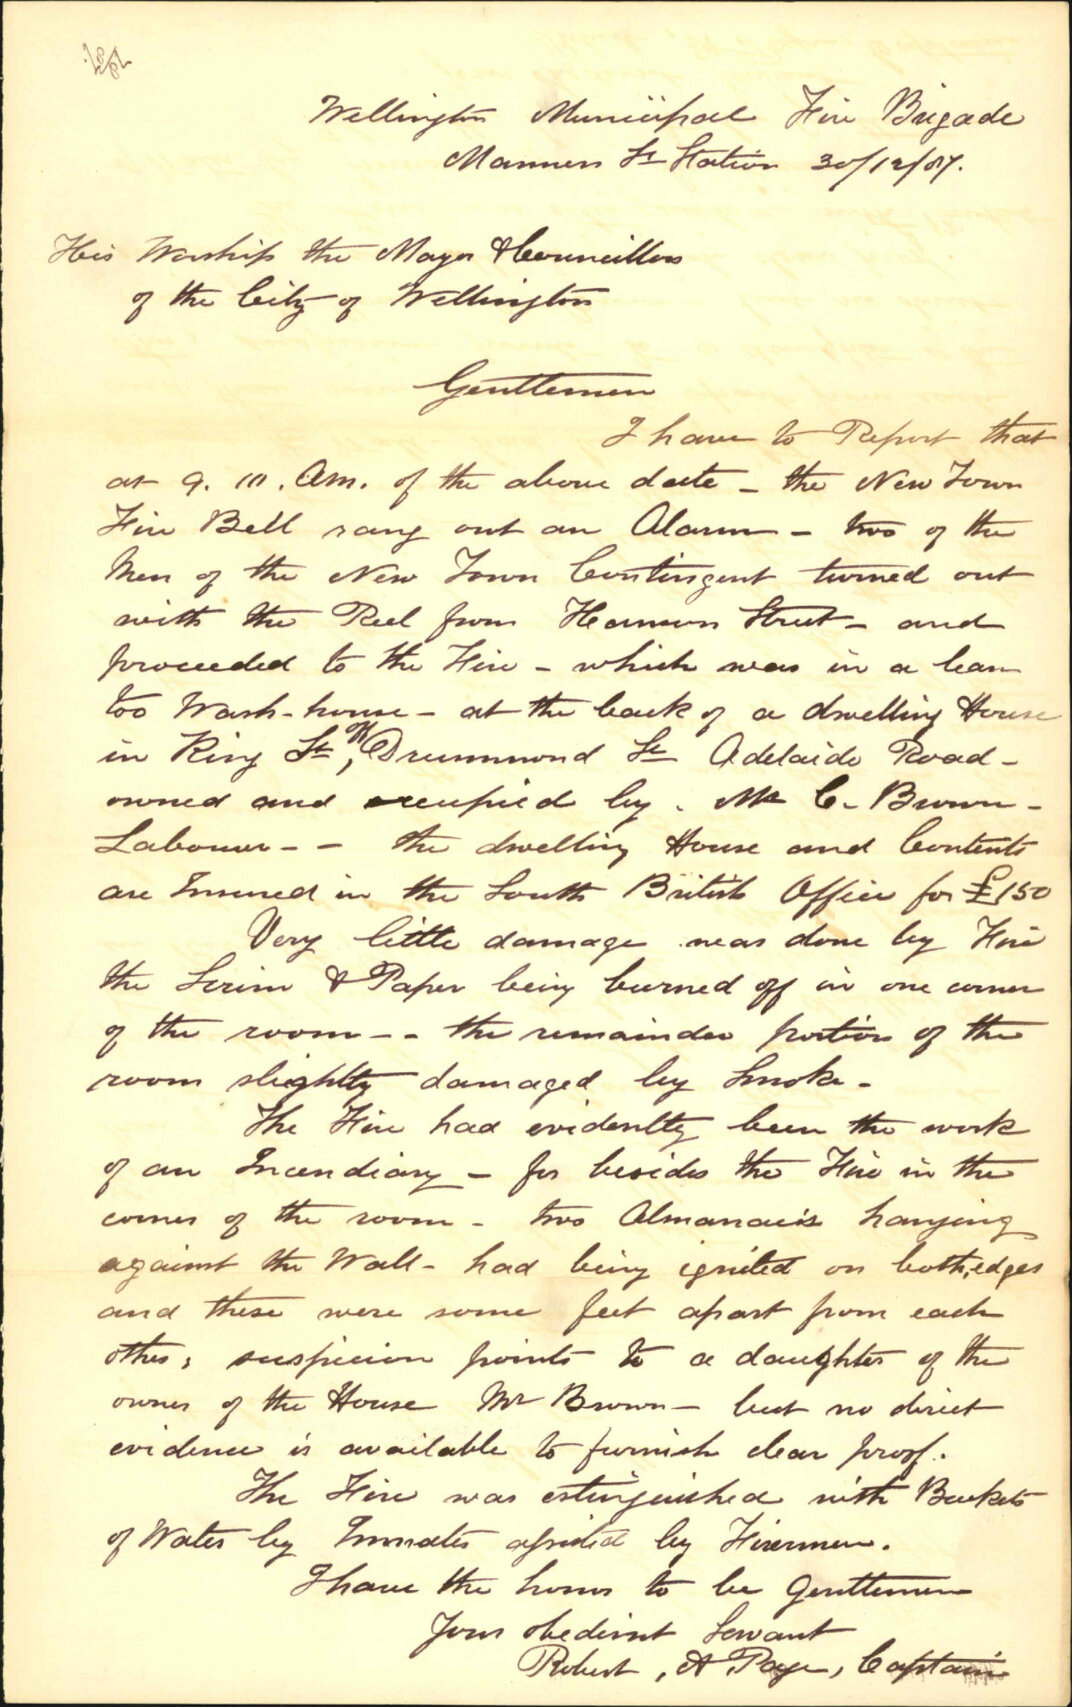 Wellington Municipal Fire Brigade
Manners St Station 30/12/87.
His Worship the Mayor & Councillors
of the City of Wellington
Gentlemen
I have to Report that
at 9. 10. Am. of the above date - the New Town
Fire Bell rang out an Alarm - two of the
Men of the New Town Contingent turned out
with the Reel from Hanson Street - and
proceeded to the Fire - which was in a lean
too Wash-house - at the back of a dwelling House
in King St, Drummond St Adelaide Road -
owned and occupied by Mr C. Brown -
Labourer - - the dwelling House and Contents
are Insured in the South British Office for £150
Very little damage was done by Fire
the Scrim & Paper being burned off in one corner
of the room - - the remainder portion of the
room slightly damaged by Smoke -
The Fire had evidently been the work
of an Incendiary - for besides the Fire in the
corner of the room - two Almanacis hanging
against the Wall - had being ignited on both edges
and these were some feet apart from each
other, suspicion points to a daughter of the
owner of the House Mr Brown - but no direct
evidence is available to furnish clear proof.
The Fire was extinguished with Buckets
of Water by Inmates assisted by Firemen.
I have the honor to be Gentlemen
Your obedient Servant
Robert, A Page, Captain